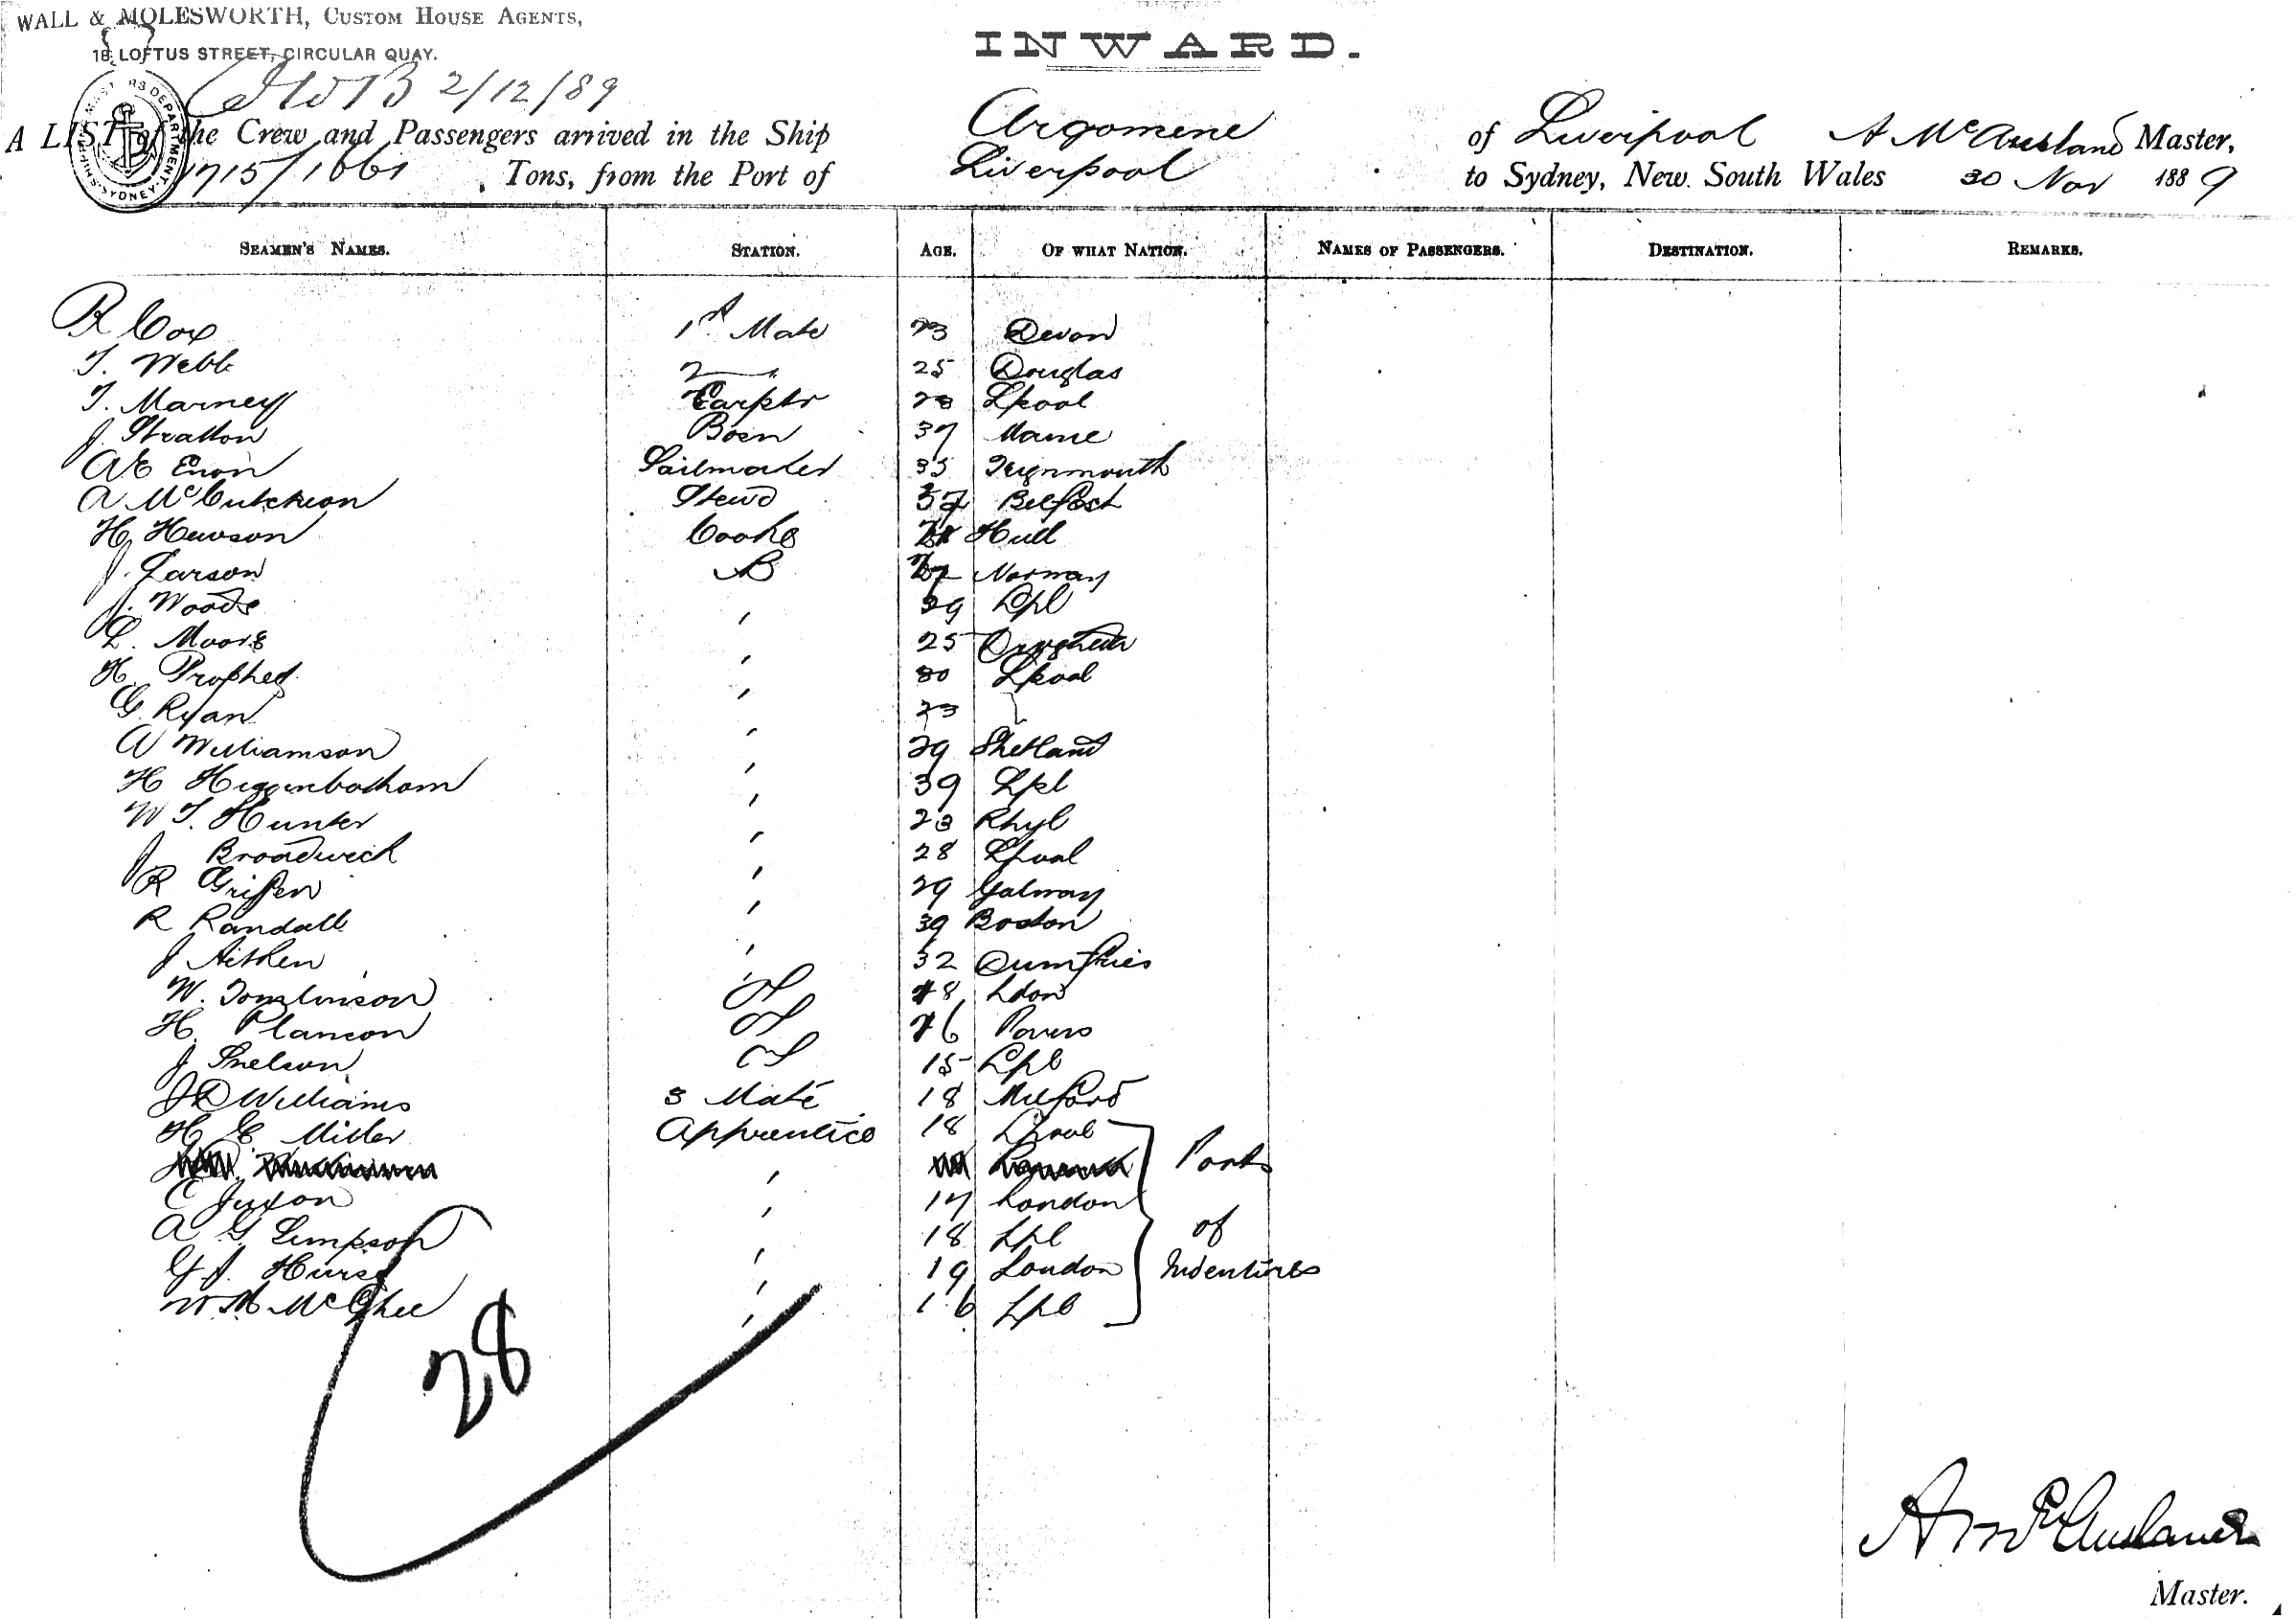 WALL & MOLESWORTH, CUSTOM HOUSE AGENTS,
18, LOFTUS STREET, CIRCULAR QUAY.
INWARD.
2/12/89
A LIST of the Crew and Passengers arrived in the Ship Argomene of Liverpool A McAusland Master,
1715/1661 Tons, from the Port of Liverpool to Sydney, New South Wales 30 Nov 1889
SEAMEN'S NAMES. STATION. AGE. OF WHAT NATION. NAMES OF PASSENGERS. DESTINATION. REMARKS.
R Cox 1st Mate 23 Devon
T. Webb 2 " 25 Douglas
T. Marney Carptr 23 Lpool
J. Stratton Bosn 37 Maine
A E Enon Sailmaker 35 Teignmouth
A McCutcheon Stewd Belfast
H. Hewson Cooke Hull
J. Larson AB 27 Norway
J. Woods " 39 Lpl
L. Moore " 25 Drogheda
H. Prophet " 30 Lpool
G. Ryan " 23 "
W Williamson " 29 Shetland
H Higginbotham " 39 Lpl
W T. Hunter " 23 Rhyl
J Broadwick " 28 Lpool
R Griffen " 29 Galway
R Randall " 39 Boston
J Aitken " 32 Dumfries
W. Tomlinson OS 18 Ldon
H. Plancon OS 16
J Snelson OS 15 Lpl
J D Williams 3 Mate 18 Milford
H G Miller Apprentice 18 Lpool
C Juxon " 17 London
A G Simpson " 18 Lpl
G J. Hurst " 19 London
W. M. McGhee " 16 Lpl
Ports
of
Indentures
28
A McAusland
Master.